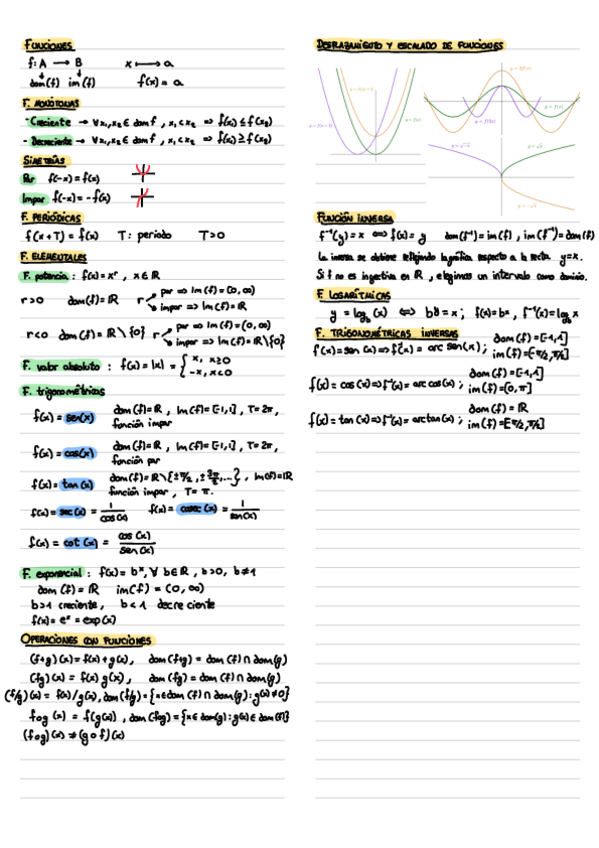 FUNCIONES
f: A → B   x ⟼ a
dom(f)  im(f)   f(x) = a
F. MONÓTONAS
- Creciente → ∀x₁,x₂ ∈ dom f , x₁ < x₂ ⇒ f(x₁) ≤ f(x₂)
- Decreciente → ∀x₁,x₂ ∈ dom f , x₁ < x₂ ⇒ f(x₁) ≥ f(x₂)
SIMETRÍAS
Par  f(-x) = f(x)
Impar  f(-x) = -f(x)
F. PERIÓDICAS
f(x+T) = f(x)   T: periodo   T>0
F. ELEMENTALES
F. potencia : f(x) = xʳ , x ∈ ℝ
r>0   dom(f) = ℝ   r   par ⇒ Im(f) = (0, ∞)
impar ⇒ Im(f) = ℝ
r<0   dom(f) = ℝ\{0}   r   par ⇒ Im(f) = (0, ∞)
impar ⇒ Im(f) = ℝ\{0}
F. valor absoluto : f(x) = |x| = { x, x≥0
-x, x<0
F. trigonométricas
f(x) = sen(x)   dom(f) = ℝ , Im(f) = [-1,1] , T = 2π ,
función impar
f(x) = cos(x)   dom(f) = ℝ , Im(f) = [-1,1] , T = 2π ,
función par
f(x) = tan(x)   dom(f) = ℝ\{±π/2, ±3π/2, ...} , Im(f) = ℝ
función impar , T = π.
f(x) = sec(x) = 1/cos(x)   f(x) = cosec(x) = 1/sen(x)
f(x) = cot(x) = cos(x)/sen(x)
F. exponencial : f(x) = bˣ, ∀ b ∈ ℝ , b>0, b≠1
dom(f) = ℝ   im(f) = (0, ∞)
b>1 creciente, b<1 decreciente
f(x) = eˣ = exp(x)
OPERACIONES CON FUNCIONES
(f+g)(x) = f(x)+g(x), dom(f+g) = dom(f) ∩ dom(g)
(fg)(x) = f(x) g(x), dom(fg) = dom(f) ∩ dom(g)
(f/g)(x) = f(x)/g(x), dom(f/g) = {x ∈ dom(f) ∩ dom(g) : g(x) ≠ 0}
fog (x) = f(g(x)) , dom(fog) = {x ∈ dom(g) : g(x) ∈ dom(f)}
(fog)(x) ≠ (gof)(x)
DESPLAZAMIENTO Y ESCALADO DE FUNCIONES
y = f(x)
y = 2f(x)
y = f(x)
y = f(2x)
y = √-x
y = √x
y = -√x
FUNCIÓN INVERSA
f⁻¹(y) = x ⟺ f(x) = y   dom(f⁻¹) = im(f) , im(f⁻¹) = dom(f)
La inversa se obtiene reflejando la gráfica respecto a la recta y=x.
Si f no es inyectiva en ℝ, elegimos un intervalo como dominio.
F. LOGARÍTMICAS
y = log_b (x) ⟺ bʸ = x ; f(x) = bˣ , f⁻¹(x) = log_b x
F. TRIGONOMÉTRICAS INVERSAS
f(x) = sen(x) ⇒ f⁻¹(x) = arc sen(x) ;   dom(f) = [-1,1]
im(f) = [-π/2, π/2]
f(x) = cos(x) ⇒ f⁻¹(x) = arc cos(x) ;   dom(f) = [-1,1]
im(f) = [0, π]
f(x) = tan(x) ⇒ f⁻¹(x) = arctan(x) ;   dom(f) = ℝ
im(f) = [-π/2, π/2]